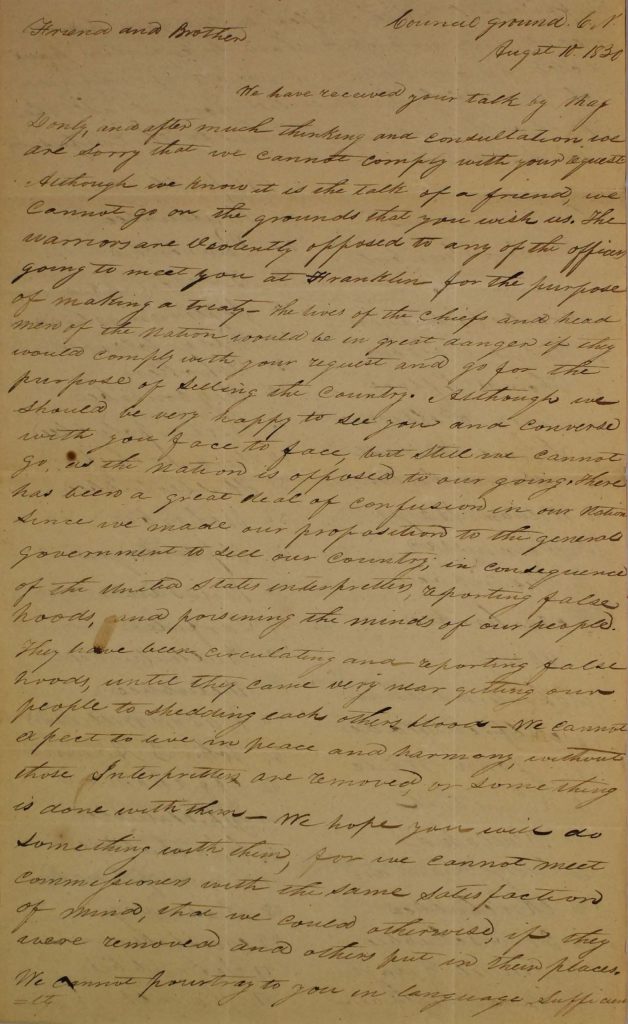 Council ground. C. N.
Friend and Brother
Augst 10 1830
We have received your talk by Maj
Donly, and after much thinking and consultation, we
are sorry that we cannot comply with your request
Although we know it is the talk of a friend, we
cannot go on the grounds that you wish us. The
warriors are Violently opposed to any of the officers
going to meet you at Franklin for the purpose
of making a treaty – The lives of the Chiefs and head
men of the Nation would be in great danger if they
would comply with your request and go for the
purpose of selling the Country. Although we
should be very happy to see you and converse
with you face to face, but still we cannot
go, as the Nation is opposed to our going. There
has been a great deal of confusion in our Nation
Since we made our proposition to the general
government to sell our Country, in consequence
of the United States interpretters, reporting false
hoods, and poisining the minds of our people.
They have been circulating and reporting false
hoods, until they came very near getting our
people to shedding each others blood – We cannot
expect to live in peace and harmony, without
those Interpretters are removed or something
is done with them – We hope you will do
something with them, for we cannot meet
commissioners with the same satisfaction
of mind, that we could otherwise, if they
were removed and others put in their places.
We cannot pourtray to you in language sufficien